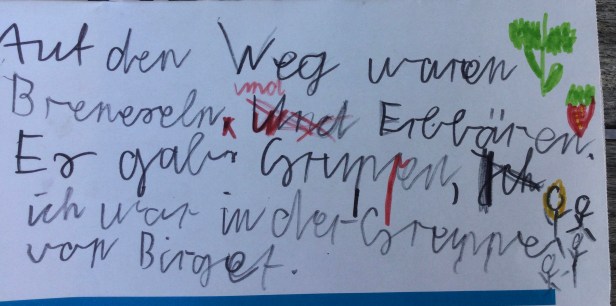 Auf den Weg waren
und
Breneseln, Und Erbbären.
Er gabr Gruppen, Ich
ich war in der Gruppe
von Birget.